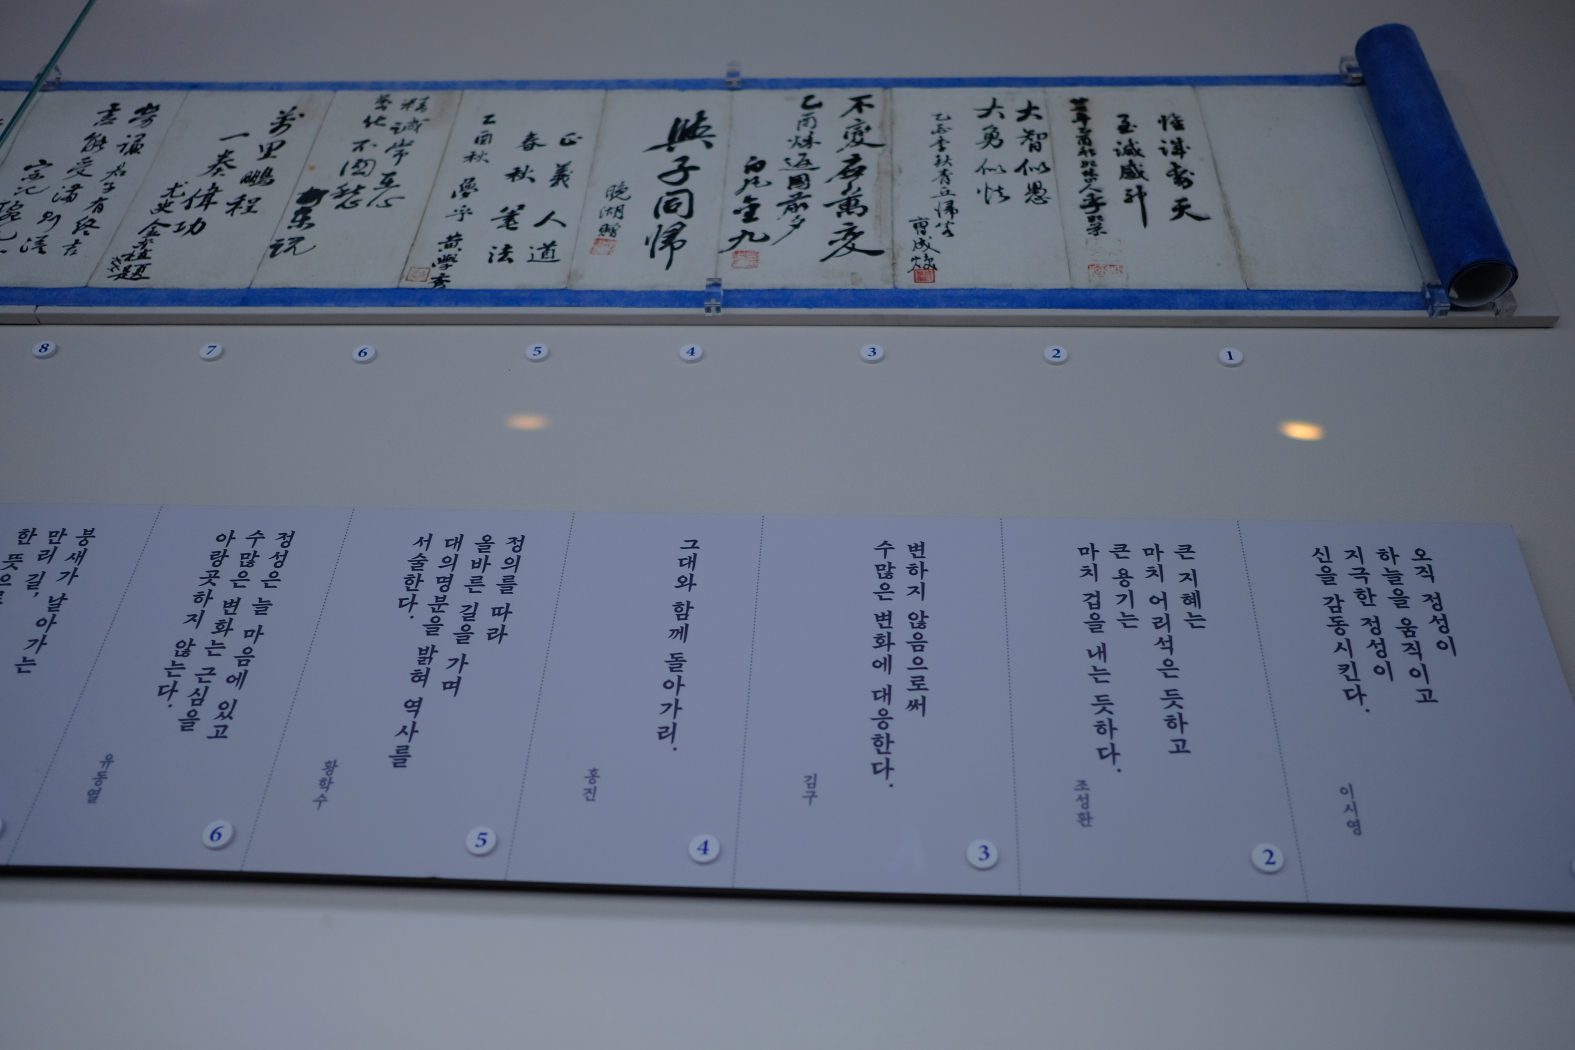 惟誠動天
至誠感神
大智似愚
大勇似怯
不變應萬變
乙酉秋返國前夕
白凡金九
與子同歸
晩湖
正義人道
春秋筆法
乙酉秋
黃學秀
精誠常在心
萬化不困愁
萬里鵬程
一奏偉功
8
7
6
5
4
3
2
1
오직 정성이
하늘을 움직이고
지극한 정성이
신을 감동시킨다.
이시영
큰 지혜는
마치 어리석은 듯하고
큰 용기는
마치 겁을 내는 듯하다.
조성환
2
변하지 않음으로써
수많은 변화에 대응한다.
김구
3
그대와 함께 돌아가리.
홍진
4
정의를 따라
올바른 길을 가며
대의명분을 밝혀 역사를
서술한다.
황학수
5
정성은 늘 마음에 있고
수많은 변화는 근심을
아랑곳하지 않는다.
유동열
6
붕새가 날아가는
만리 길,
한 뜻으로